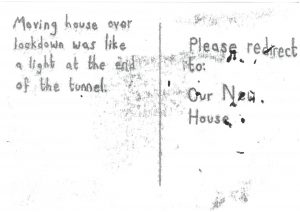 Moving house over
lockdown was like
a light at the end
of the tunnel.
Please redirect
to:
Our New
House.